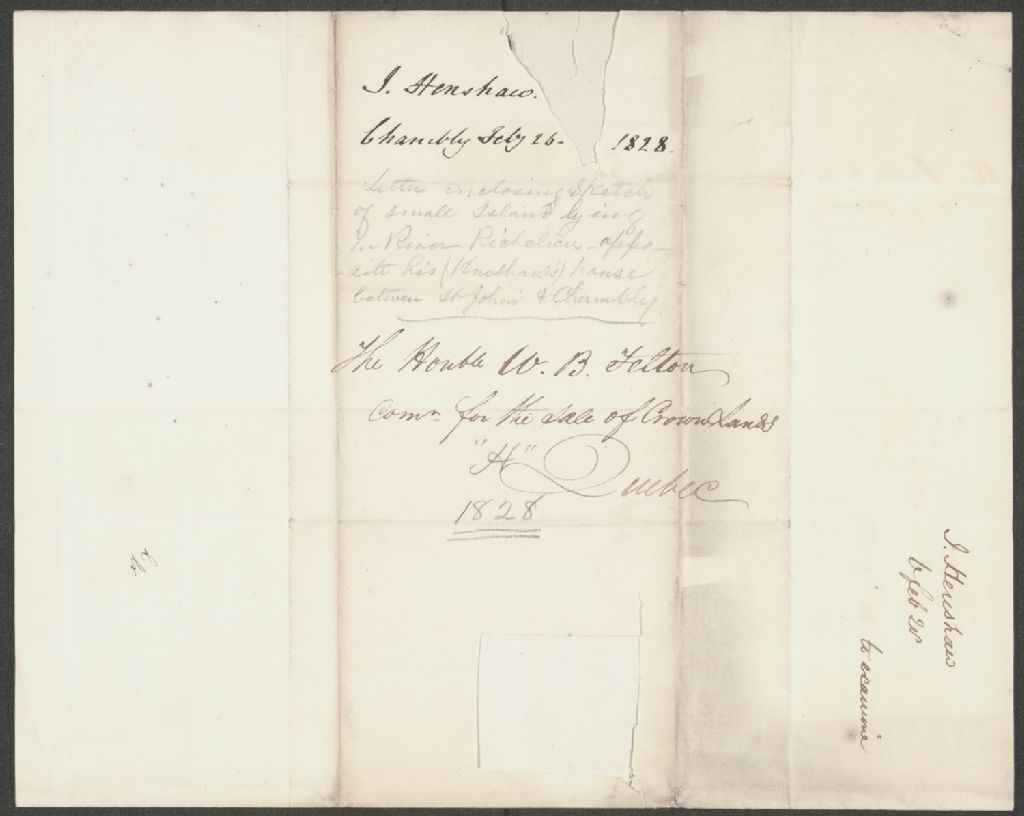 J. Henshaw.
Chambly Feby 26- 1828.
Letter enclosing Sketch
of small Island lying
in River Richelieu -oppo-
-site his (Henshaw's) house
between St John's & Chambly
The Honble W. B. Felton
Comr for the Sale of Crown Lands
"H" Quebec
1828
J. Henshaw
6 feb 28
to examine